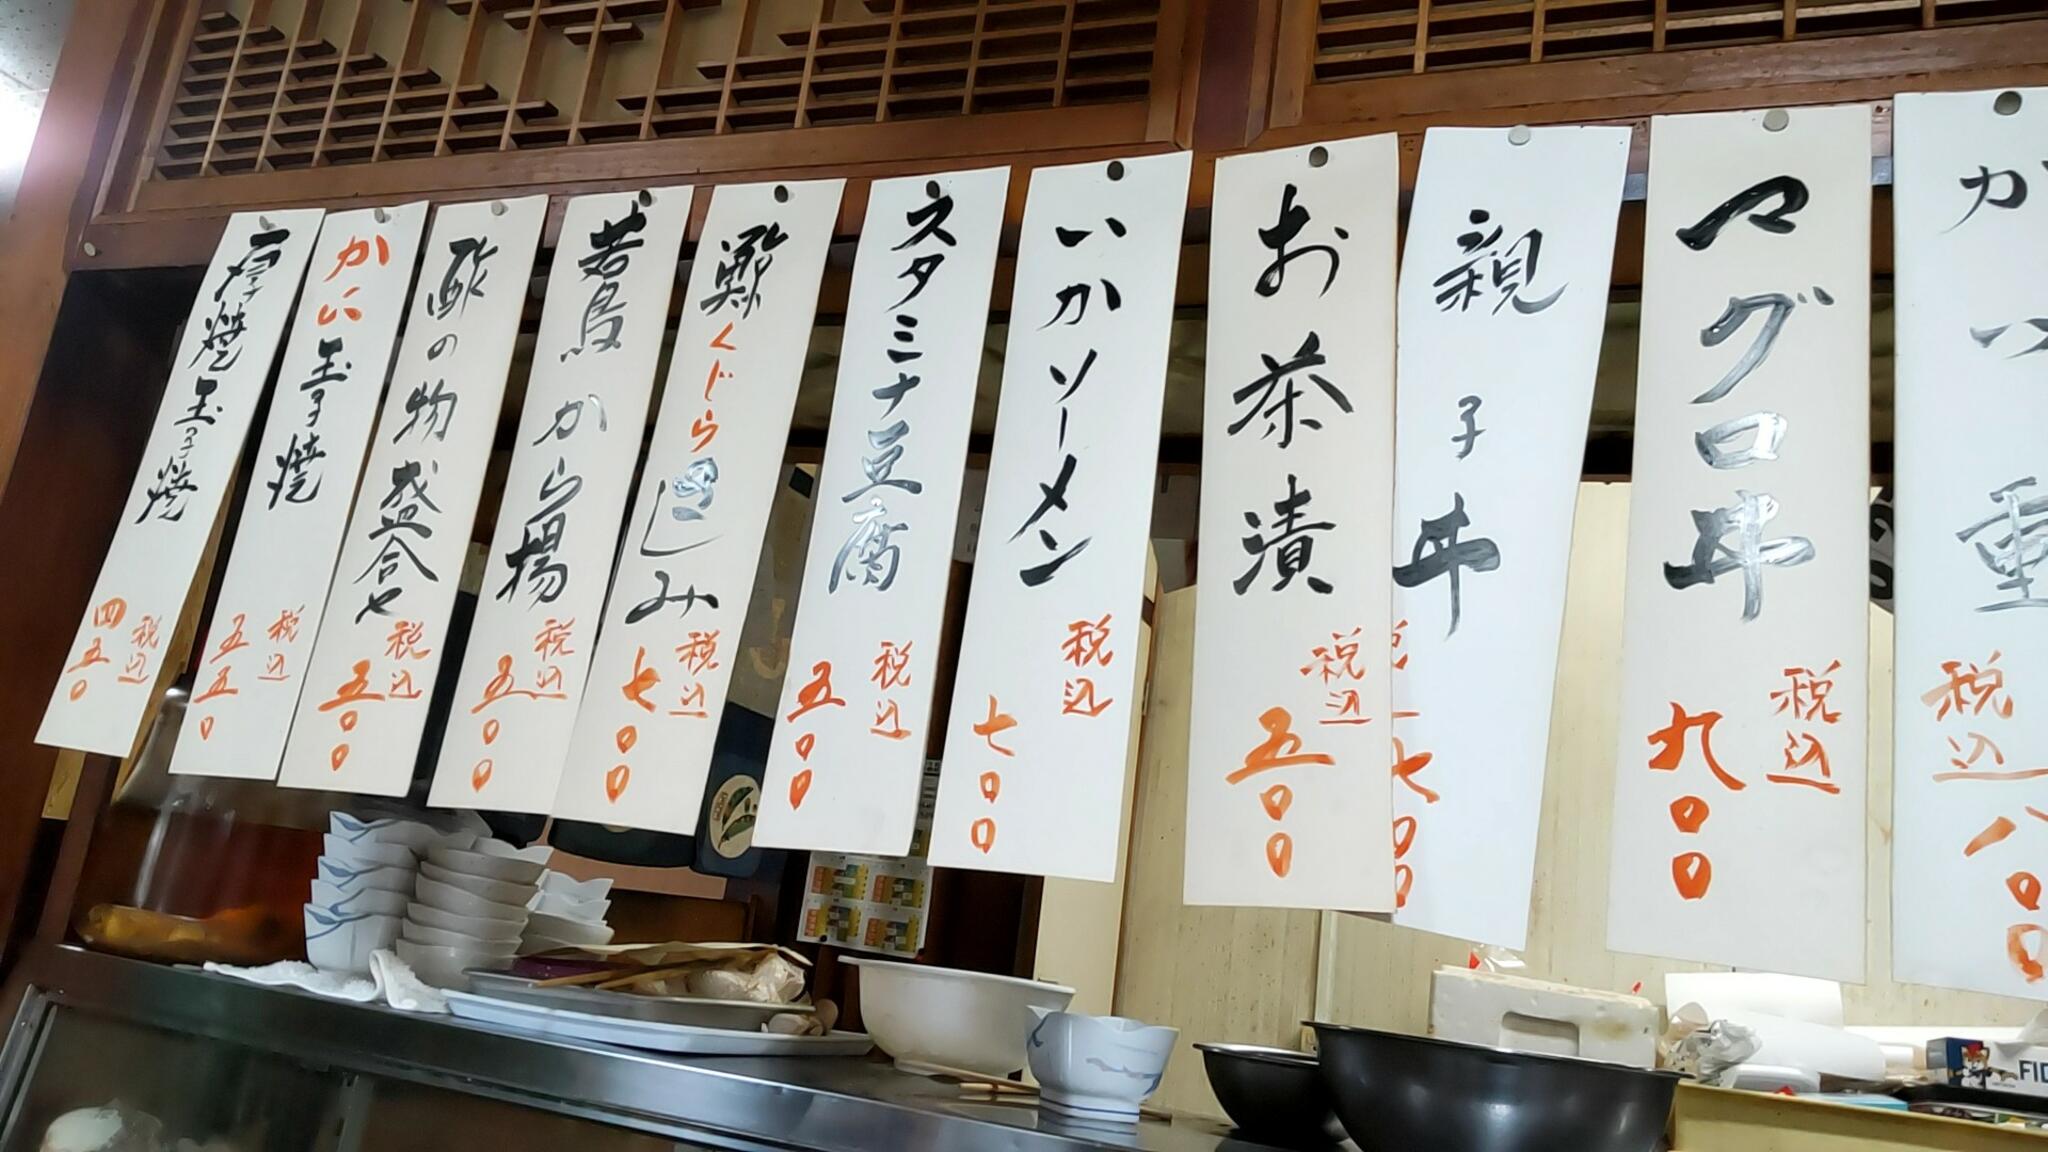 かつ重
税込
八〇〇
マグロ丼
税込
九〇〇
親子丼
税込
七〇〇
お茶漬
税込
五〇〇
いかソーメン
税込
七〇〇
スタミナ豆腐
税込
五〇〇
くじら
税込
七〇〇
若鳥から揚
税込
五〇〇
酢の物盛合せ
税込
五〇〇
かに玉子焼
税込
五五〇
厚焼玉子焼
税込
四五〇
FID